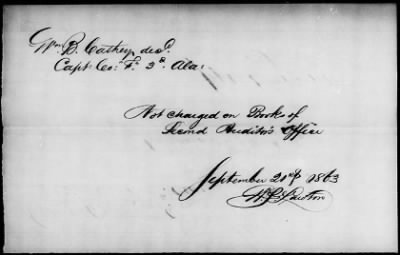 Wm B. Cathey, decd.
Capt Co: F. 3d. Ala:
Not charged on Books of
Second Auditor's Office
September 21st 1863